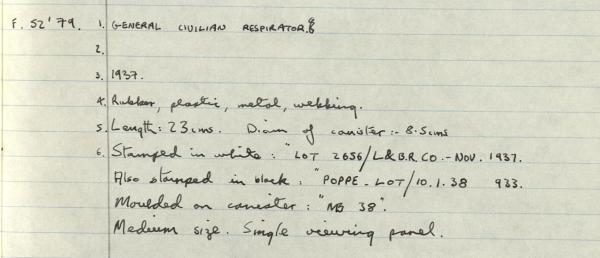 F. 52'79. 1. GENERAL CIVILIAN RESPIRATOR.
2.
3. 1937.
4. Rubber, plastic, metal, webbing.
5. Length: 23cms. Diam of canister:- 8.5cms
6. Stamped in white: "LOT 2656/L&B.R.CO.-NOV. 1937.
Also stamped in black: "POPPE. LOT/10.1.38 933.
Moulded on canister: "MB 38".
Medium size. Single viewing panel.